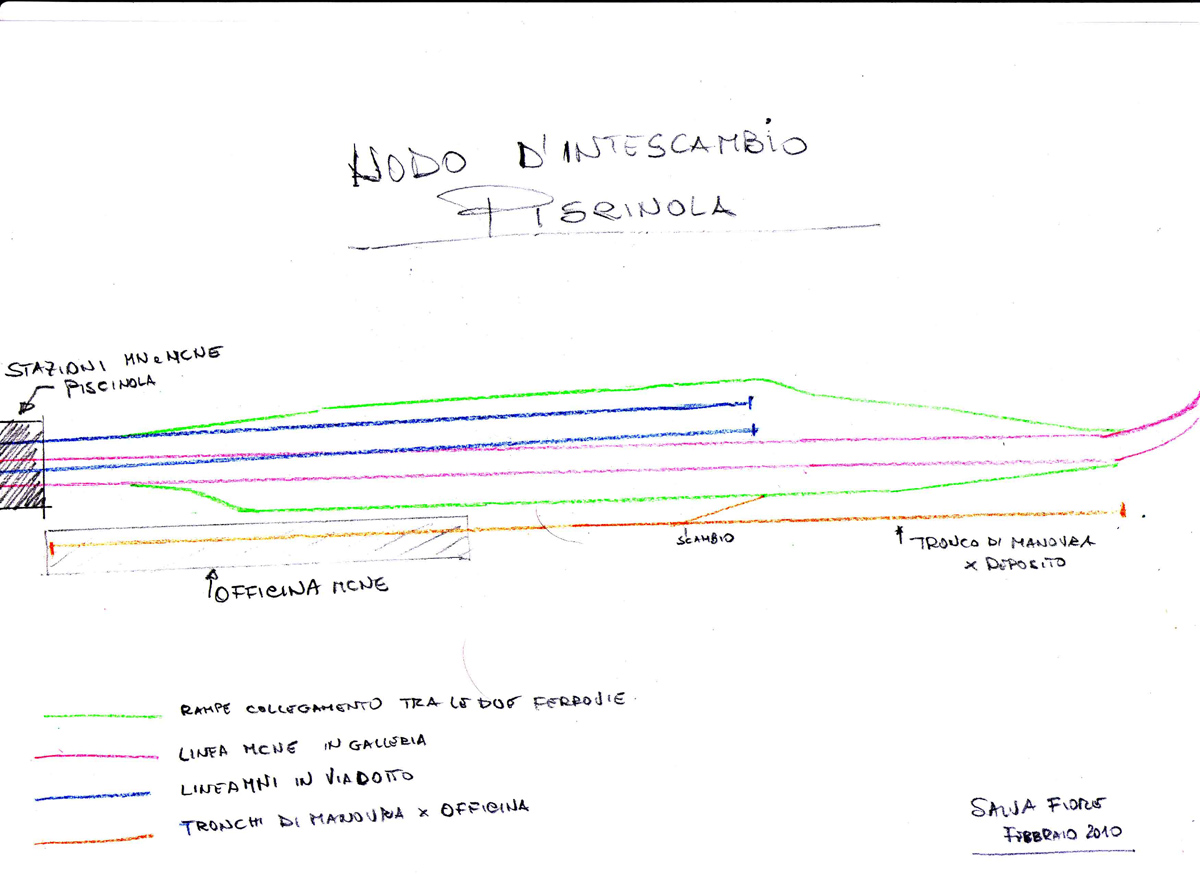 NODO D'INTESCAMBIO
PISCINOLA
STAZIONI MN e MCNE
PISCINOLA
SCAMBIO
TRONCO DI MANOVRA
x DEPOSITO
OFFICINA MCNE
RAMPE COLLEGAMENTO TRA LE DUE FERROVIE
LINEA MCNE IN GALLERIA
LINEA MN1 IN VIADOTTO
TRONCHI DI MANOVRA x OFFICINA
SALVA FIORE
FEBBRAIO 2010